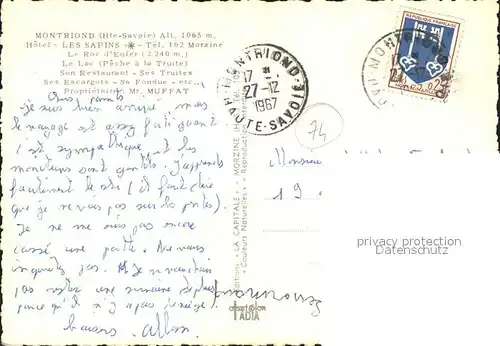 MONTRIOND (Hte-Savoie) Alt. 1065 m.
Hôtel - LES SAPINS - Tél. 162 Morzine
Le Roc d'Enfer (2240 m.)
Le Lac (Pêche à la Truite)
Son Restaurant - Ses Truites
Ses Escargots - Sa Fondue - etc...
Propriétaire: Mr. MUFFAT
Chers parents
je suis bien arrivé mais
le voyage est assez fatiguant
c'est sympathique et les
moniteurs sont gentils. J'apprends
facilement le ski (il faut dire
que je ne vais pas sur les pistes)
Je ne me suis pas encore
cassé une patte. Ne vous
inquiétez pas. Je voudrais
pas rester une semaine de plus
parce qu'il n'y a pas de neige.
baisers. Allan
MONTRIOND
17
27-12
1967
HAUTE-SAVOIE
74
Monsieur
19
privacy protection
Datenschutz
Editions "LA CAPITALE" - MORZINE
"Couleurs Naturelles" - Reproduction
TADIA